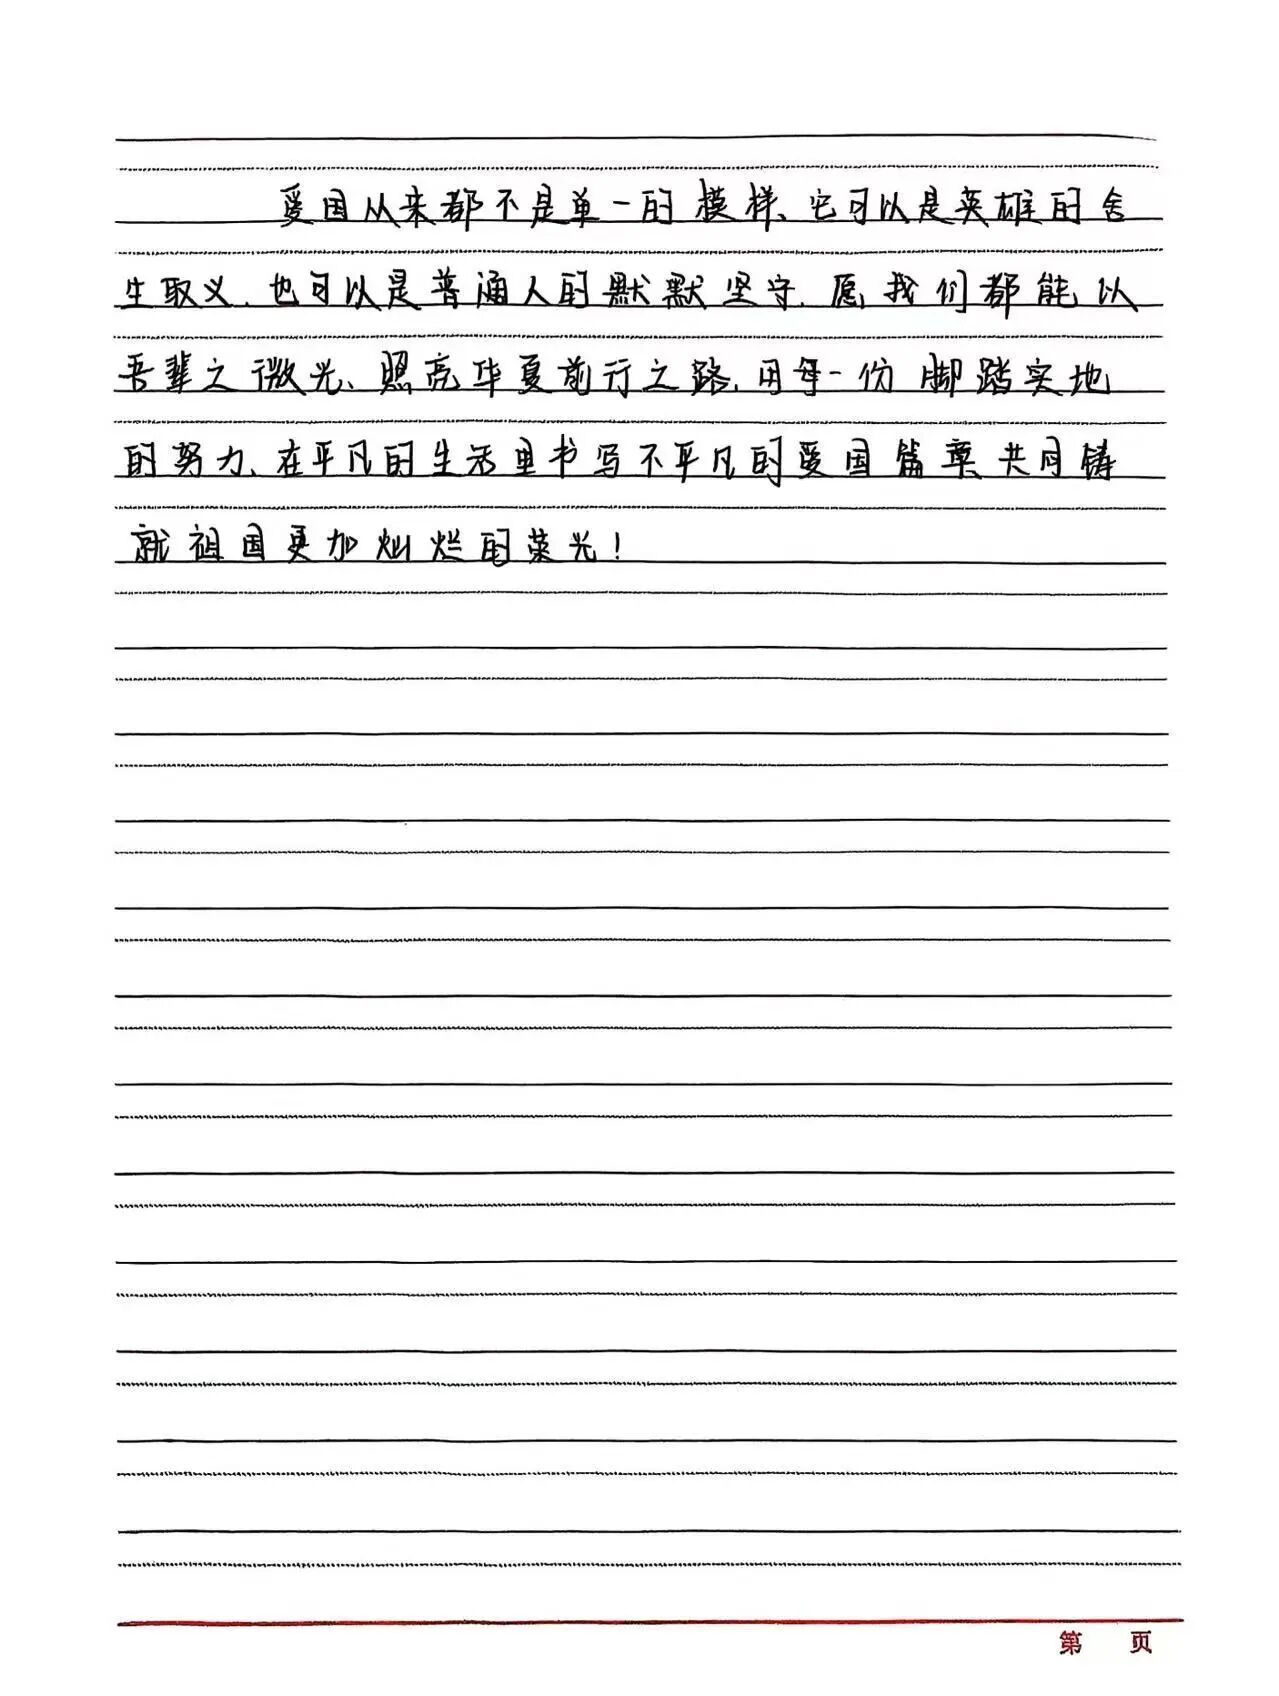 爱国从来都不是单一的模样、它可以是英雄的舍
生取义、也可以是普通人的默默坚守、愿我们都能以
吾辈之微光、照亮华夏前行之路、用每一份脚踏实地
的努力、在平凡的生活里书写不平凡的爱国篇章共同铸
就祖国更加灿烂的荣光！
第 页